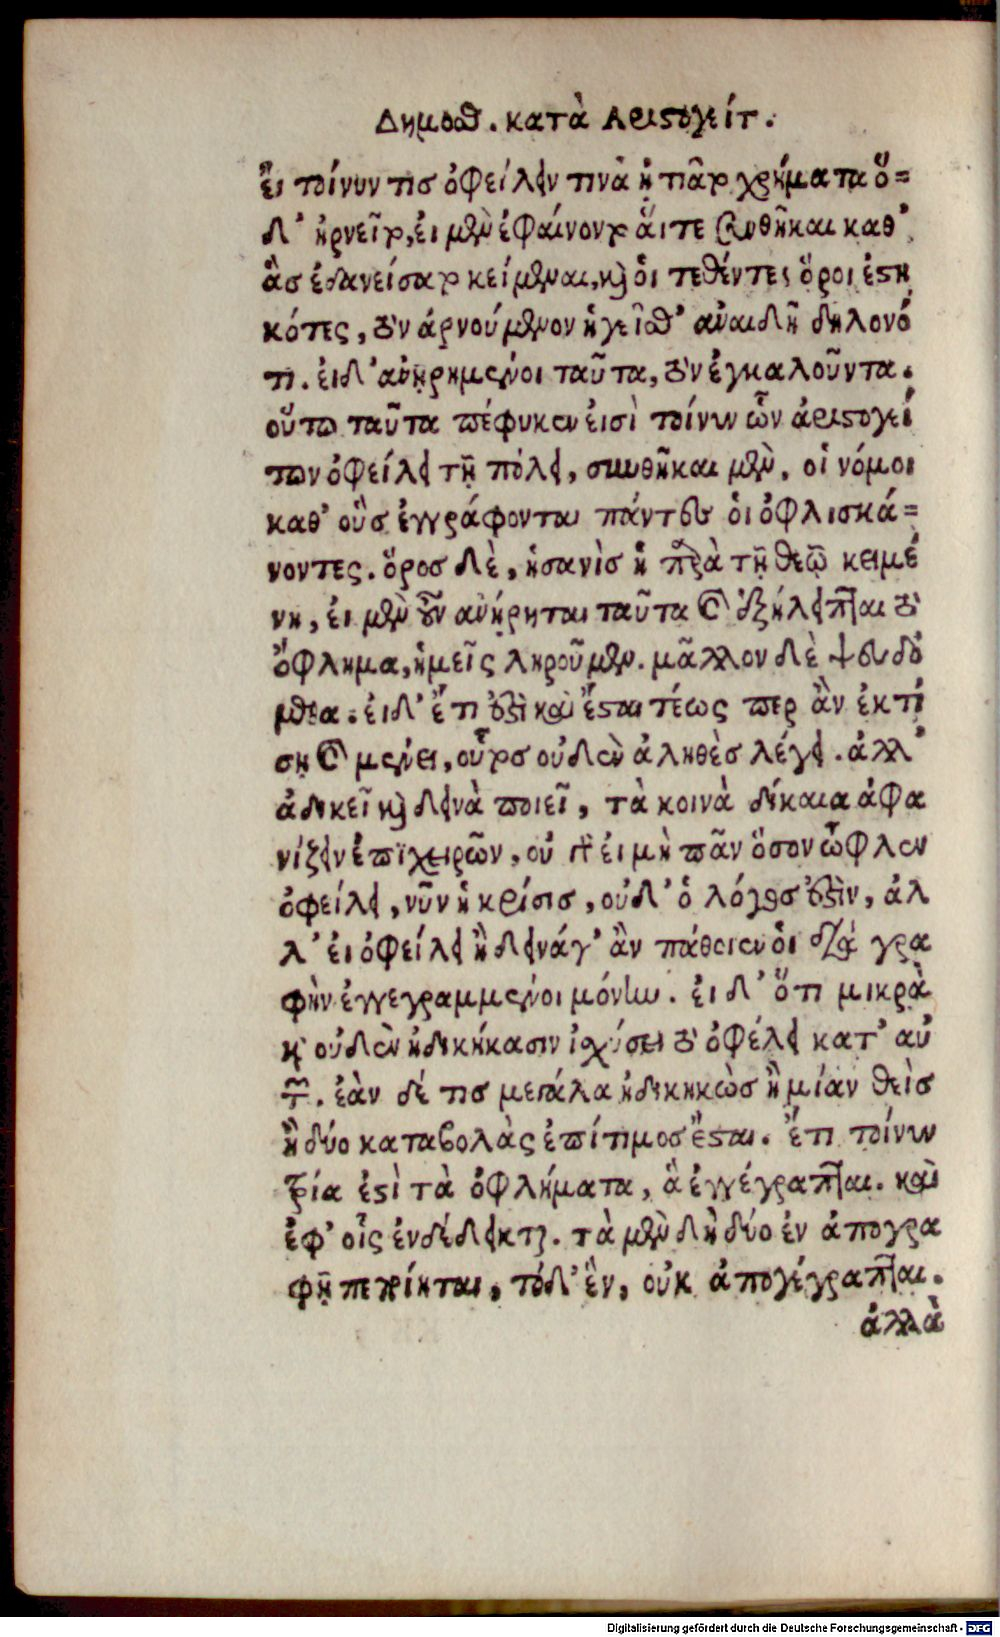 Δημοσθ. κατὰ Αριστογείτ.
ἔι τοίνυν τισ ὀφείλειν τινὰ ἠτιᾶτο χρήματα ὁ=
δ' ἠρνεῖτο, ἐι μὲν ἐφαίνοντο ἅιτε συνθῆκαι καθ'
ἃσ ἐδανείσατο κείμεναι, καὶ ὁι τεθέντες ὅροι ἑστη
κότες, τὸν ἀρνούμενον ἡγεῖσθ' ἀναιδῆ δηλονό
τι. ἐι δ' ἀνῃρημένοι ταῦτα, τὸν ἐγκαλοῦντα.
οὕτω ταῦτα πέφυκεν ἐισὶ τοίνυν ὧν ἀριστογεί
των ὀφείλει τῇ πόλει, συνθῆκαι μὲν, οἱ νόμοι
καθ' οὓσ ἐγγράφονται πάντες ὁι ὀφλισκά=
νοντες. ὅροσ δὲ, ἡσανὶσ ἡ παρὰ τῇ θεῷ κειμέ
νη, ἐι μὲν οὖν ἀνῄρηται ταῦτα καὶ ἐξήλειπται τὸ
ὄφλημα, ἡμεῖς ληροῦμεν. μᾶλλον δὲ ψευδό
μεθα. ἐι δ' ἔτι ἐστὶ καὶ ἔσται τέως περ ἂν ἐκτί
σῃ καὶ μένει, οὗτοσ οὐδὲν ἀληθὲσ λέγει. ἀλλ'
ἀδικεῖ καὶ δεινὰ ποιεῖ, τὰ κοινὰ δίκαια ἀφα
νίζειν ἐπιχειρῶν, οὐ γὰρ ἐι μὴ πᾶν ὅσον ὦφλεν
ὀφείλει, νῦν ἡ κρίσισ, οὐδ' ὁ λόγοσ ἐστὶν, ἀλ
λ' ἐι ὀφείλει ἢ δεινάγ' ἂν πάθοιεν ὁι διὰ γρα
φὴν ἐγγεγραμμένοι μόνην. ἐι δ' ὅτι μικρὰ
ἢ οὐδὲν ἠδικήκασιν ἰσχύσει τὸ ὀφέλει κατ' αὐ
τῶν. ἐὰν δέ τισ μεγάλα ἠδικηκὼσ ἢ μίαν θεὶσ
ἢ δύο καταβολὰς ἐπίτιμοσ ἔσται. ἔτι τοίνυν
τρία ἐστὶ τὰ ὀφλήματα, ἃ ἐγγέγραπται. καὶ
ἐφ' οἷς ἐνδέδεικται. τὰ μὲν δὴ δύο ἐν ἀπογρα
φῇ πεποίηται, τόδ' ἓν, οὐκ ἀπογέγραπται.
ἀλλὰ
Digitalisierung gefördert durch die Deutsche Forschungsgemeinschaft - DFG